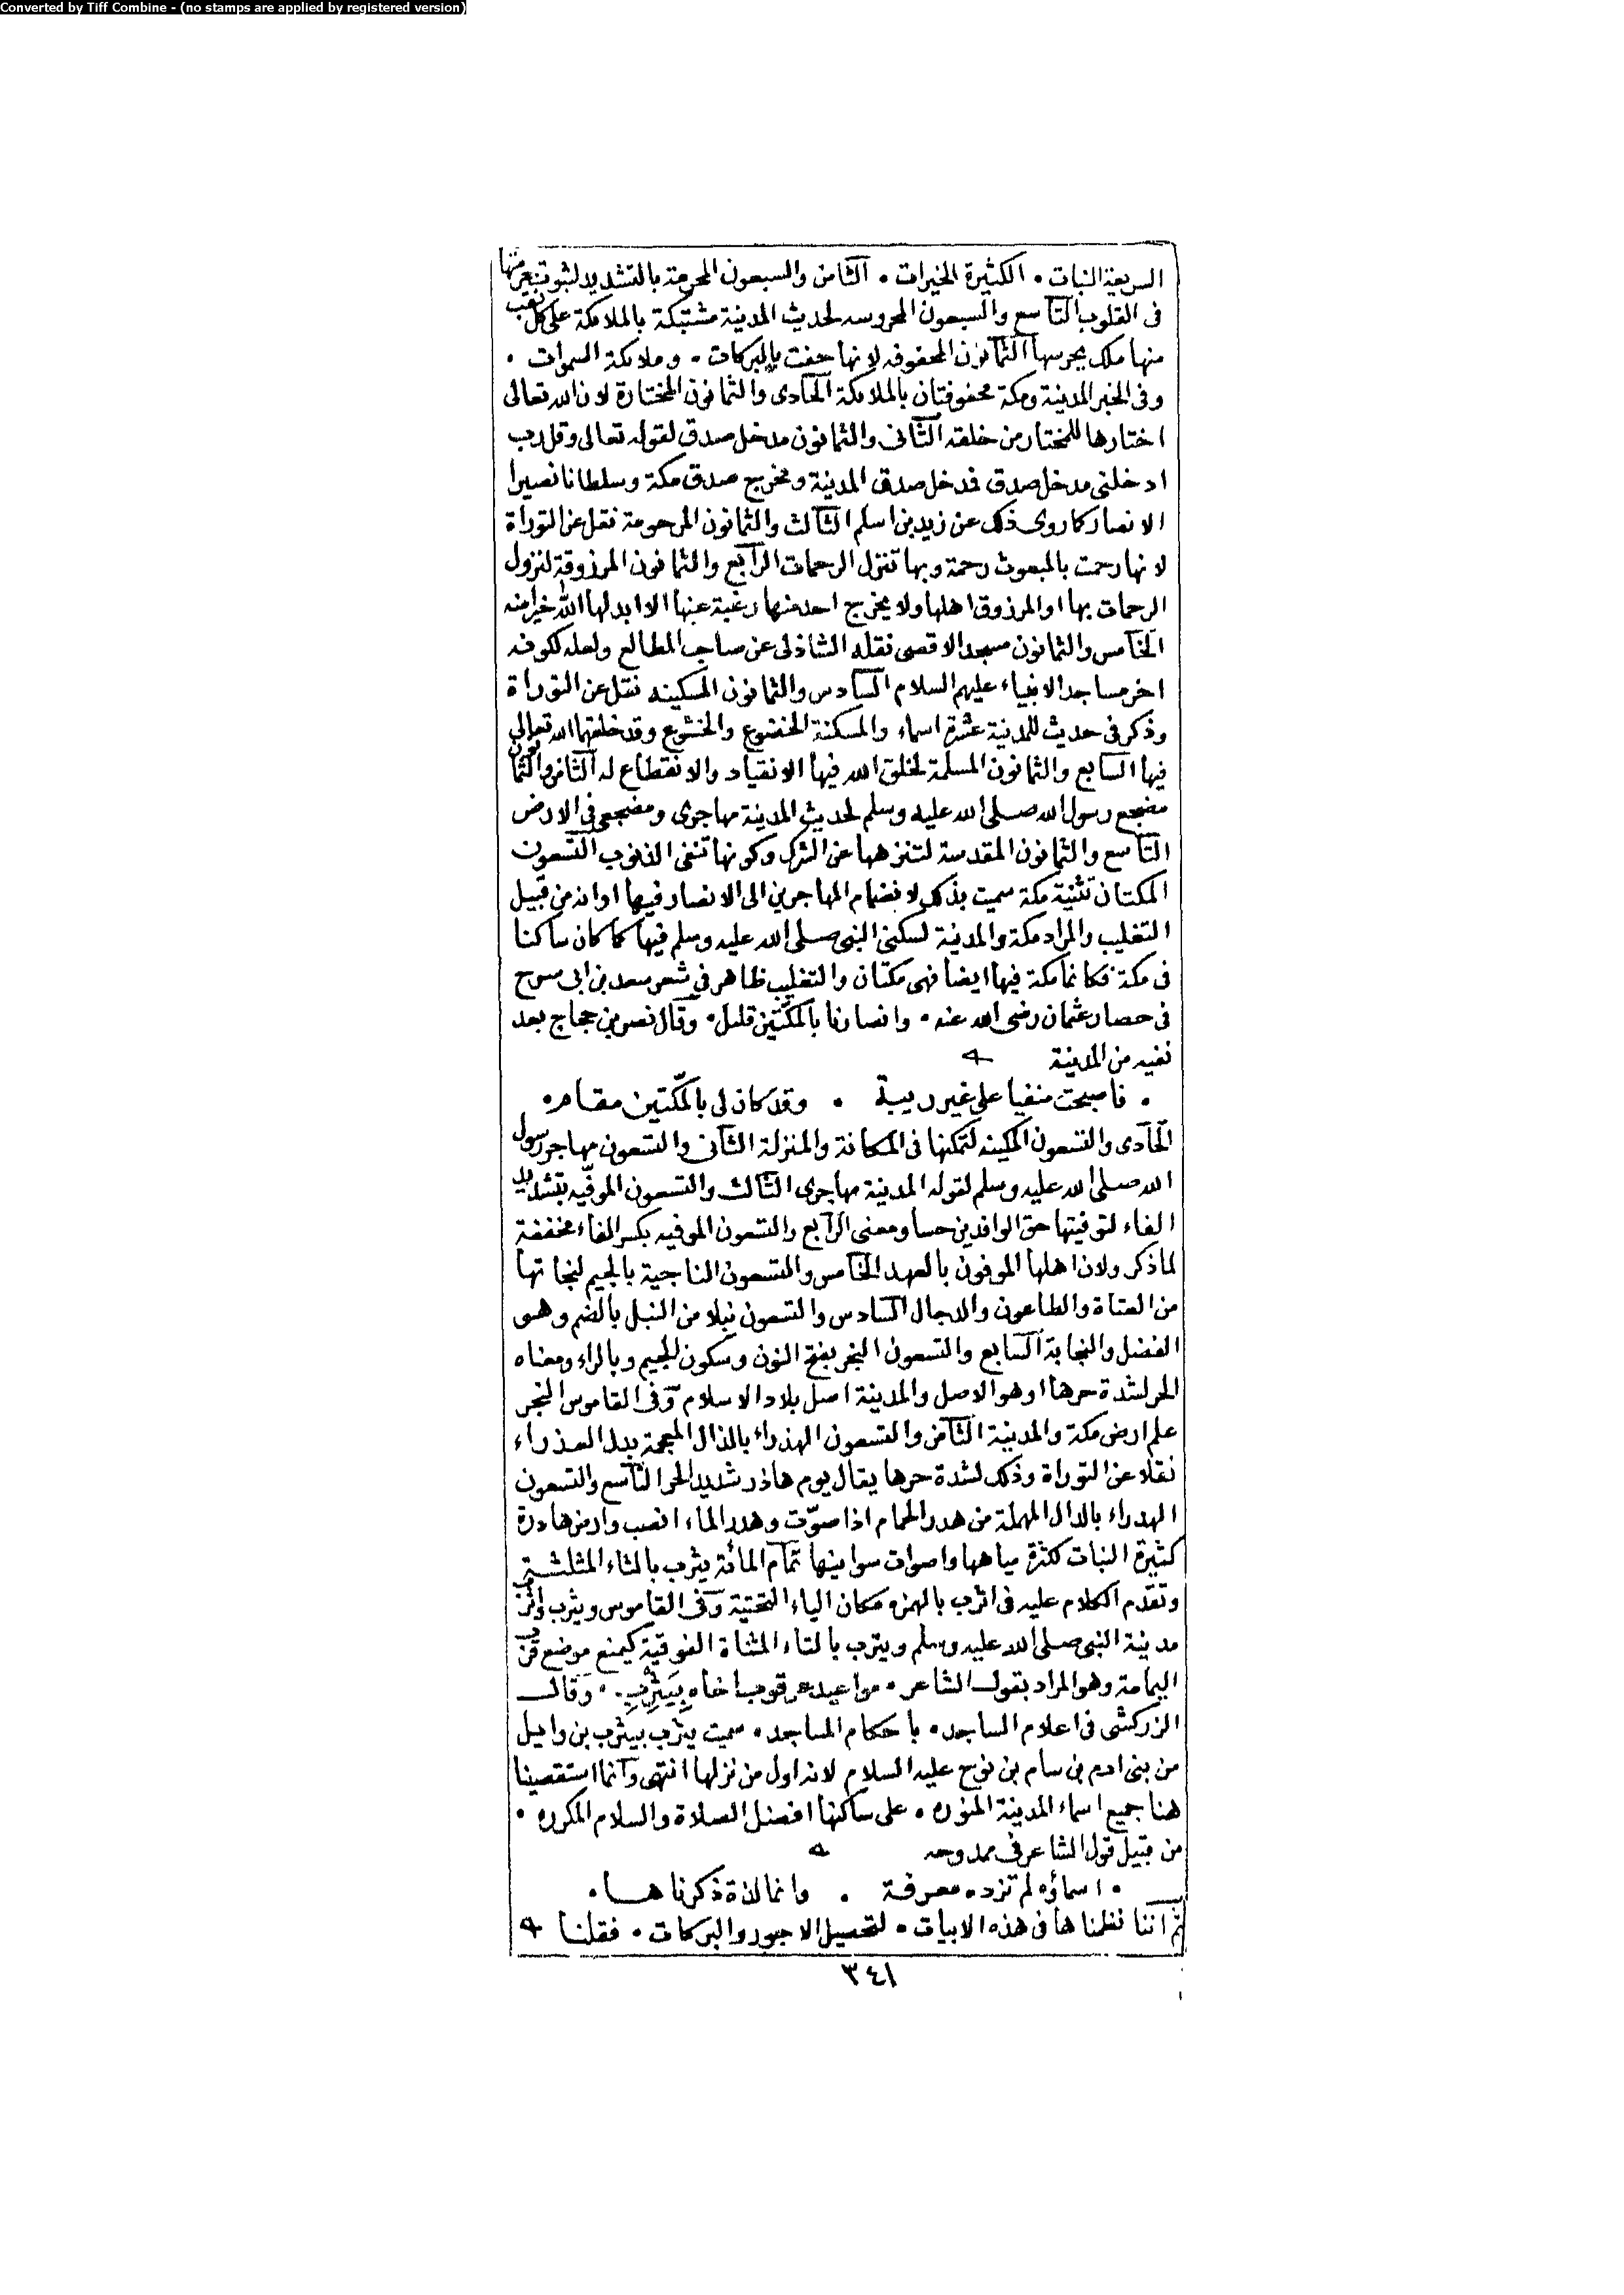 Converted by Tiff Combine - (no stamps are applied by registered version)
السريعة النبات . الكثيرة الخيرات . الثامن والسبعون المحرمة بالتشديد لثبوت تحريمها
فى القلوب التاسع والسبعون المحروسه لحديث المدينة مشتبكة بالملائكة على كل نقب
منها ملك يحرسها الثمانون المحفوفه لانها حفت بالبركات . وملائكة السموات .
وفى الخبر المدينة ومكة محفوفتان بالملائكة الحادى والثمانون المختارة لان الله تعالى
اختارها للمختار من خلقه الثانى والثمانون مدخل صدق لقوله تعالى وقل رب
ادخلنى مدخل صدق فمدخل صدق المدينة ومخرج صدق مكة وسلطانا نصيرا
الانصار كما روى ذلك عن زيد بن اسلم الثالث والثمانون المرحومة نقل عن التوراة
لانها رحمت بالمبعوث رحمة وبها تنزل الرحمات الرابع والثمانون المرزوقة لنزول
الرحمات بها او المرزوق اهلها ولا يخرج احد منها رغبة عنها الا ابدلها الله خيرا منه
الخامس والثمانون مسجد الاقصى نقله الشاذلى عن صاحب المطالع ولعله لكونه
اخر مساجد الانبياء عليهم السلام السادس والثمانون المسكينه نقل عن التوراة
وذكر فى حديث للمدينة عشرة اسماء والمسكنة الخضوع والخشوع وقد خلقهما الله تعالى
فيها السابع والثمانون المسلمة لخلق الله فيها الانقياد والانقطاع له الثامن والثمانون
مضجع رسول الله صلى الله عليه وسلم لحديث المدينة مهاجرى ومضجعى فى الارض
التاسع والثمانون المقدسة لتنزهها عن الشرك وكونها تنفى الذنوب التسعون
المكتان تثنية مكة سميت بذلك لانضمام المهاجرين الى الانصار فيها او انه من قبيل
التغليب والمراد مكة والمدينة لسكنى النبى صلى الله عليه وسلم فيها كما كان ساكنا
فى مكة فكانما مكة فيها ايضا فهى مكتان والتغليب ظاهر فى شعر سعد بن ابى سرح
فى حصار عثمان رضى الله عنه . وانصارنا بالمكّتين قليل . وقال نصر بن حجاج بعد
نفيه من المدينة
. فاصبحت منفيا على غير ريبة . وقد كان لى بالمكّتين مقام .
الحادى والتسعون المكينه لتمكنها فى المكانة والمنزلة الثانى والتسعون مهاجر رسول
الله صلى الله عليه وسلم لقوله المدينة مهاجرى الثالث والتسعون الموفّيه بتشديد
الفاء لتوفيتها حق الوافدين حسا ومعنى الرابع والتسعون الموفيه بكسر الفاء مخففة
لما ذكر ولان اهلها الموفون بالعهد الخامس والتسعون الناجية بالجيم لنجاتها
من العتاة والطاعون والدجال السادس والتسعون نبلا من النبل بالضم وهو
الفضل والنجابة السابع والتسعون النجر بفتح النون وسكون الجيم وبالراء ومعناه
الحر لشدة حرها او هو الاصل والمدينة اصل بلاد الاسلام وفى القاموس النجر
علم ارض مكة والمدينة الثامن والتسعون الهذراء بالذال المعجمة بدل العذراء
نقلا عن التوراة وذلك لشدة حرها يقال يوم هاذر شديد الحر التاسع والتسعون
الهدراء بالدال المهملة من هدر الحمام اذا صوّت وهدر الماء انصب وارض هادرة
كثيرة النبات لكثرة مياهها واصوات سوانيها تمام المائة يثرب بالثاء المثلثة
وتقدم الكلام عليه فى اثرب بالهمزه مكان الياء التحتية وفى القاموس ويثرب واثرب
مدينة النبى صلى الله عليه وسلم ويترب بالتاء المثناة الفوقية كيمنع موضع قرب
اليمامة وهو المراد بقول الشاعر . مواعيد عرقوب اخاه بِيَتْرَبِ . وقال
الزركشى فى اعلام الساجد . باحكام المساجد . سميت يثرب بيثرب بن وائيل
من بنى ادم بن سام بن نوح عليه السلام لانه اول من نزلها انتهى وانما استقصينا
هنا جميع اسماء المدينة المنوره . على ساكنها افضل الصلاة والسلام المكرره .
من قبيل قول الشاعر فى ممدوحه
. اسماؤه لم تزده معرفة . وانما لذة ذكرناها .
ثم اننا نظمناها فى هذه الابيات . لتحصيل الاجور والبركات . فقلنا
٣٤١